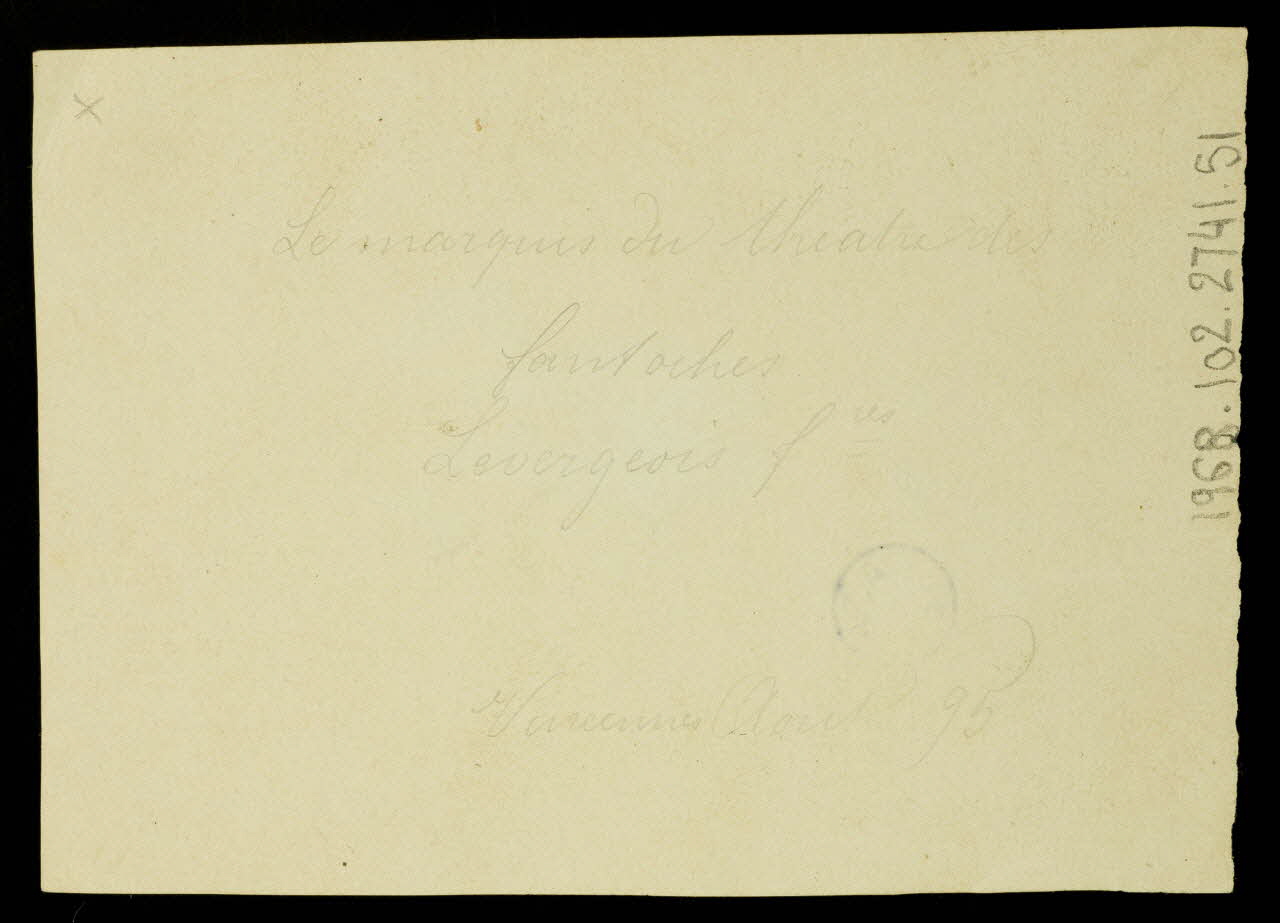 x
Le marquis du theatre des
fantoches
Levergeois fres
Vincennes Aout 95
1968.102.2741.51